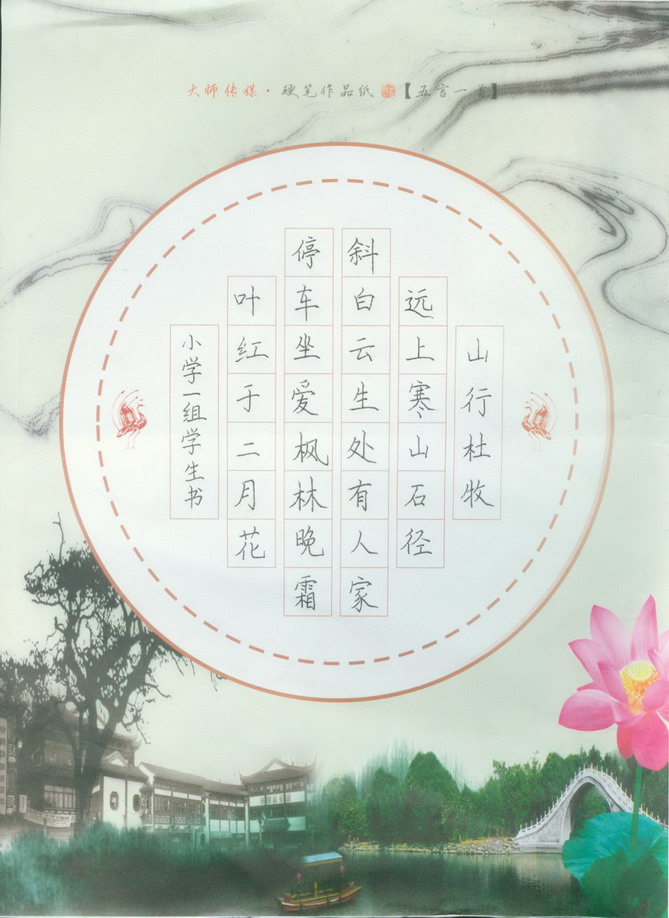 大师传媒·硬笔作品纸【五言一首】
山行杜牧
远上寒山石径
斜白云生处有人家
停车坐爱枫林晚霜
叶红于二月花
小学一组学生书